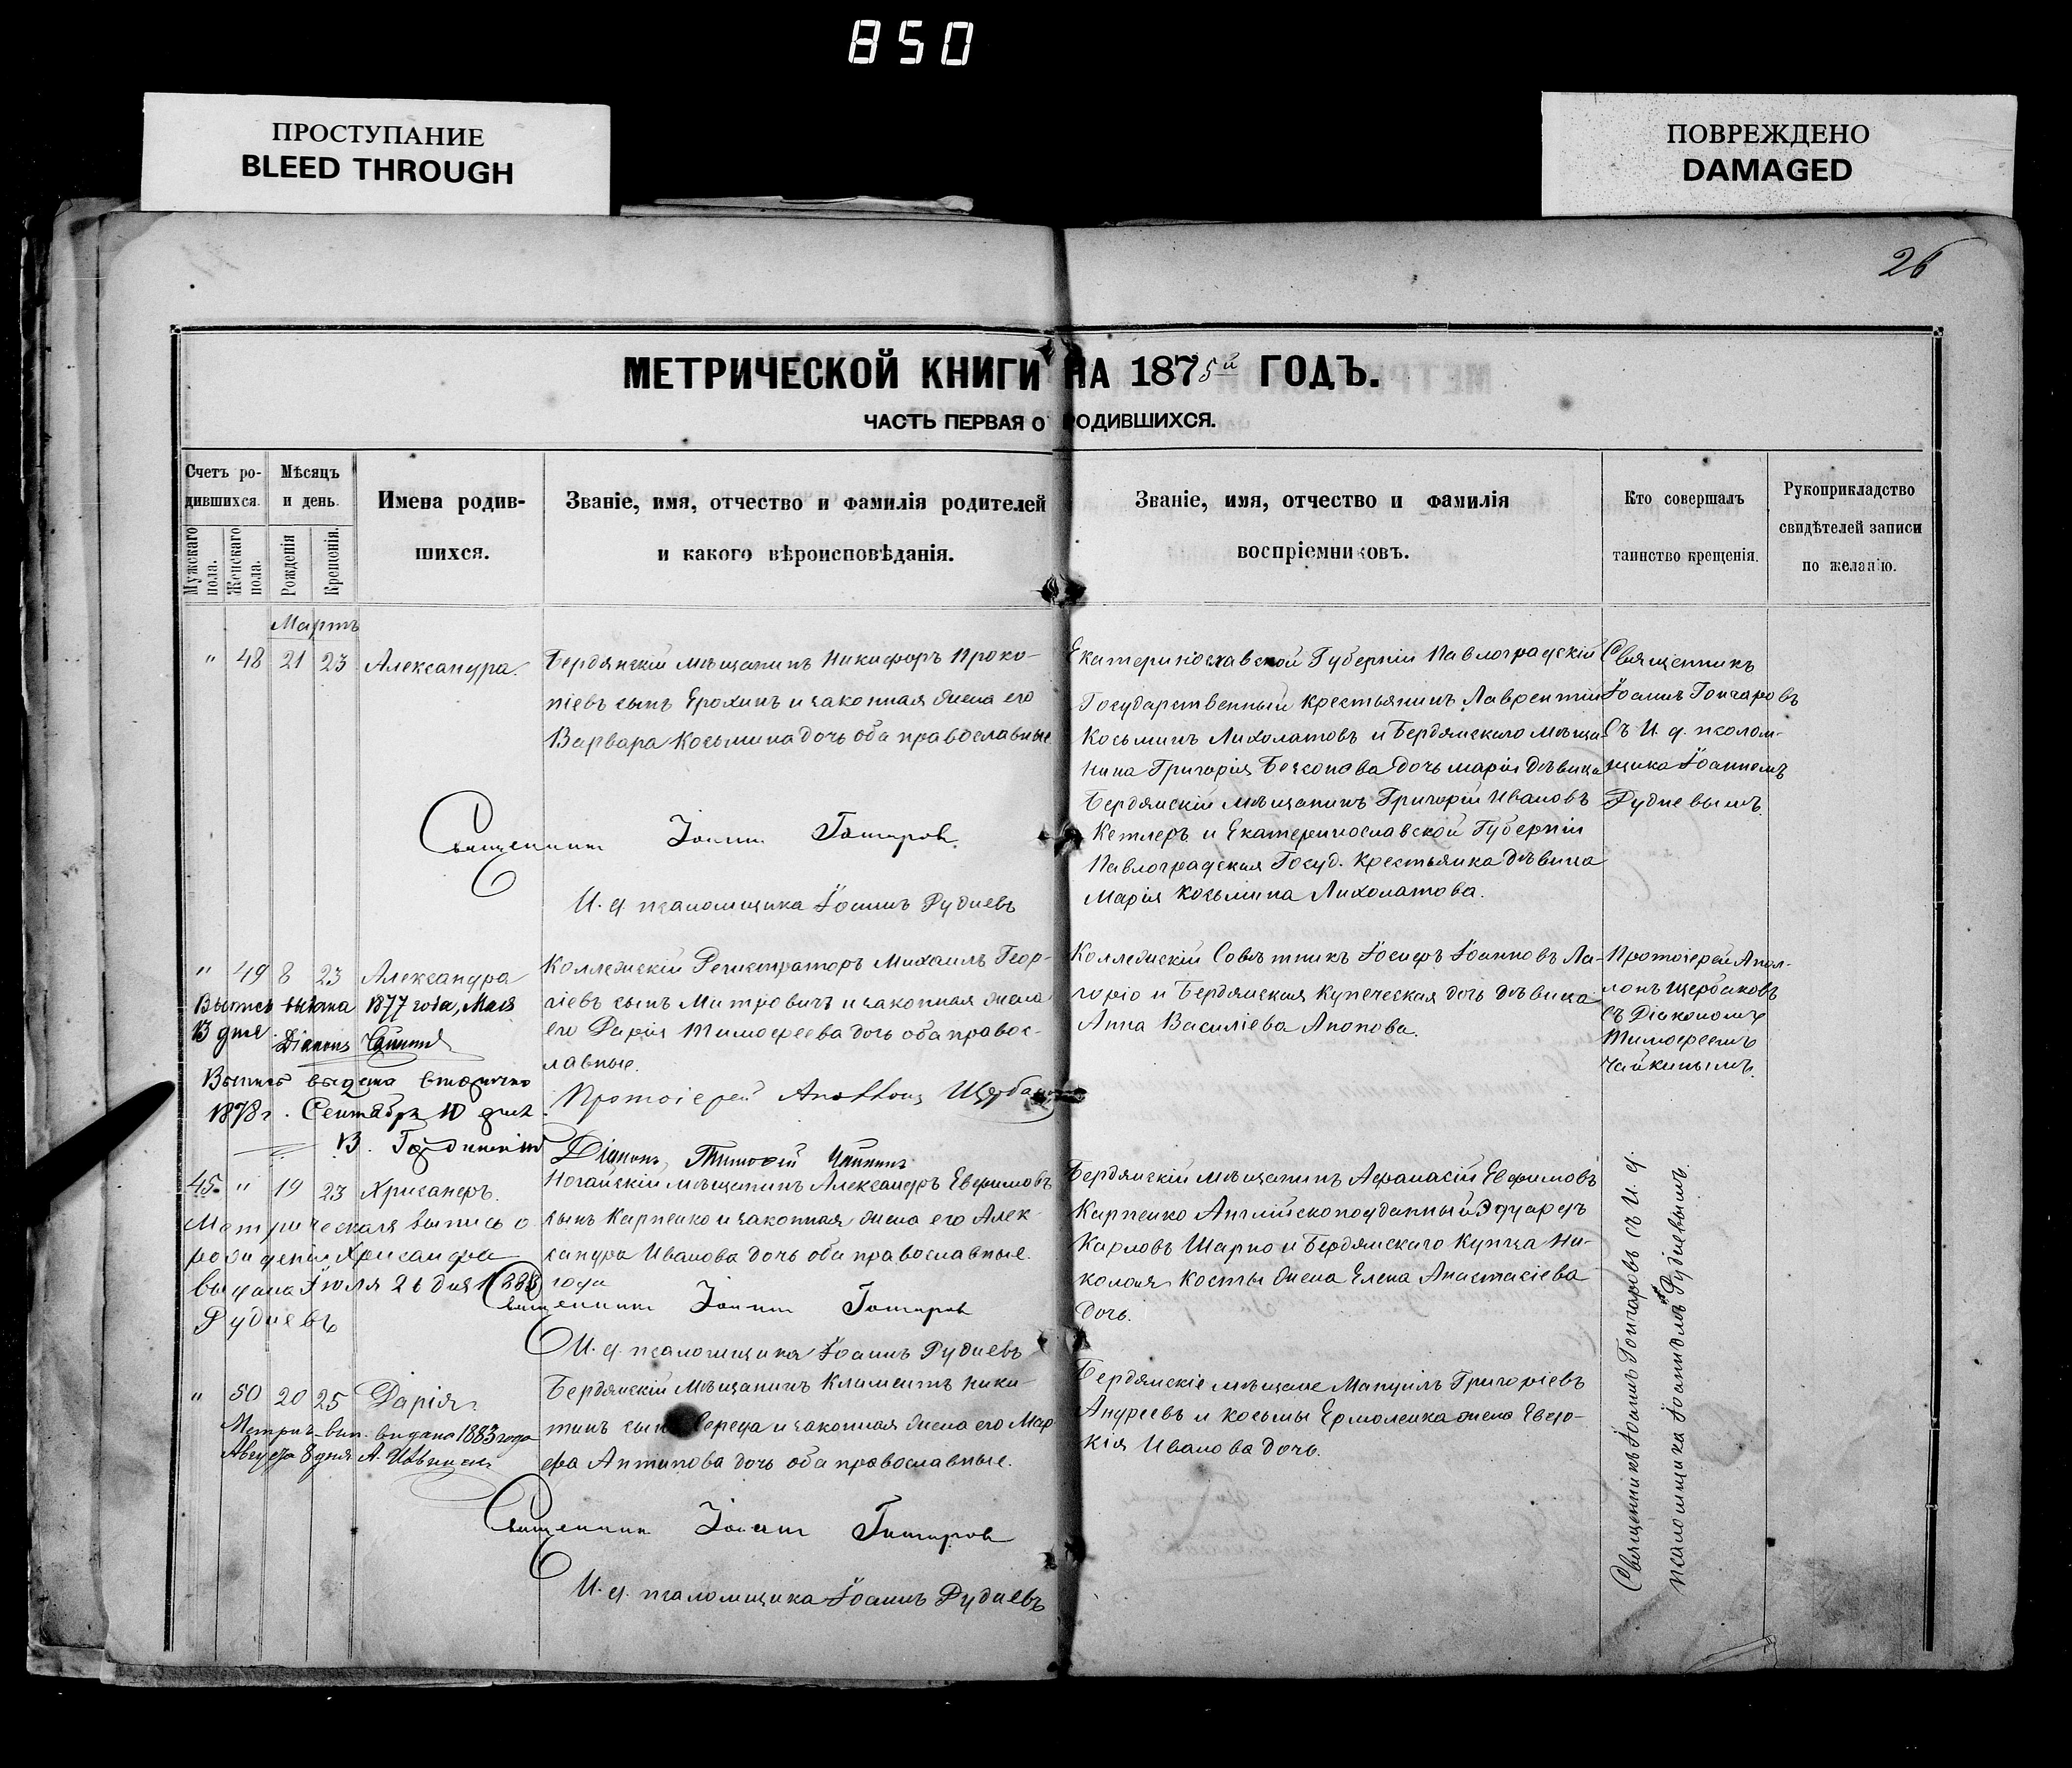 850
ПРОСТУПАНИЕ
BLEED THROUGH
ПОВРЕЖДЕНО
DAMAGED
26
МЕТРИЧЕСКОЙ КНИГИ НА 1875й ГОДЪ.
ЧАСТЬ ПЕРВАЯ О РОДИВШИХСЯ.
Счетъ ро-
дившихся.
Мужскаго пола.
Женскаго пола.
Мѣсяцъ
и день.
Рожденія
Крещенія.
Имена родив-
шихся.
Званіе, имя, отчество и фамилія родителей
и какого вѣроисповѣданія.
Званіе, имя, отчество и фамилія
воспріемниковъ.
Кто совершалъ
таинство крещенія.
Рукоприкладство
свидѣтелей записи
по желанію.
Мартъ
" 48 21 23 Александра.
Бердянскій мѣщанинъ Никифоръ Проко-
піевъ сынъ Ерохинъ и законная жена его
Варвара Косьмина дочь оба православные
Екатеринославской Губерніи Павлоградскій
Государственный крестьянинъ Лаврентій
Косьминъ Лихолатовъ и Бердянскаго мѣща-
нина Григорія дочь Марія дѣвица
Бердянскій мѣщанинъ Григорій Ивановъ
Кетлеръ и Екатеринославской Губерніи
Павлоградская Госуд. крестьянка дѣвица
Марія Козьмина Лихолатова.
Священникъ
Іоаннъ Гончаровъ
съ И. д. псалом-
щика Іоанномъ
Рудневымъ.
Священникъ Іоаннъ Гончаров
И. д. псаломщика Іоаннъ Рудневъ
" 49 8 23 Александра
Выпись выдана 1877 года, Мая
13 дня.
Діаконъ
Выпись выдана вторично
1878 г. Сентября 10 дня
В.
Коллежскій Регистраторъ Михаилъ Геор-
гіевъ сынъ Митровичъ и законная жена
его Дарія Тимофеева дочь оба правос-
лавные.
Протоіерей Аполлонъ Щербаковъ
Діаконъ Тимофей Чайкинъ
Коллежскій Совѣтникъ Іосифъ Іоанновъ Ла-
горіо и Бердянская Купеческая дочь дѣвица
Анна Василіева Анопова.
Протоіерей Апол-
лонъ Щербаковъ
съ Діакономъ
Тимофеемъ
Чайкинымъ.
45. " 19 23 Хрисанфъ.
Метрическая выпись о
рожденіи Хрисанфа
выдана Іюля 26 дня 1888 года
Рудневъ
Ногайскій мѣщанинъ Александръ Евфимовъ
сынъ Карпенко и законная жена его Алек-
сандра Иванова дочь оба православные.
Священникъ Іоаннъ Гончаров
И. д. псаломщика Іоаннъ Рудневъ
Бердянскій мѣщанинъ Афанасій Евфимовъ
Карпенко Англійскоподданный Эдуардъ
Карловъ Шарпо и Бердянскаго Купца Ни-
колая Косты жена Елена Анастасіева
дочь.
Священникъ Іоаннъ Гончаровъ съ И. д.
псаломщика Іоанномъ Рудневымъ.
" 50 20 25 Дарія
Метрич. вып. выдана 1883 года
Августа 8 дня А.
Бердянскій мѣщанинъ Климентъ Ники-
тинъ сынъ и законная жена его Мар-
фа Антипова дочь оба православные.
Священникъ Іоаннъ Гончаров
И. д. псаломщика Іоаннъ Рудневъ
Бердянскіе мѣщане Мануилъ Григоріевъ
Андреевъ и Косьмы Ермоленка жена Евдо-
кія Иванова дочь.